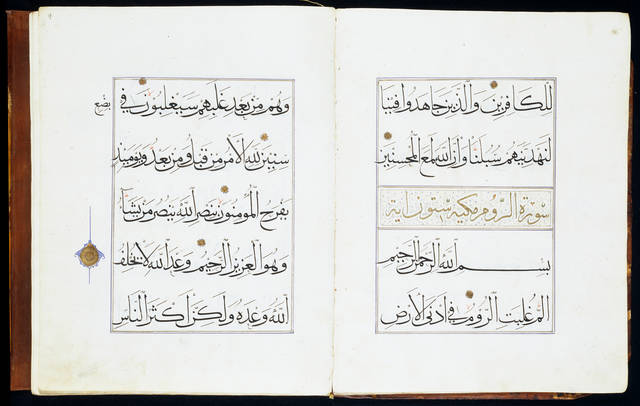 للكافرين والذين جاهدوا فينا
لنهدينهم سبلنا وان الله لمع المحسنين
سورة الروم مكية ستون اية
بسم الله الرحمن الرحيم
الم غلبت الروم في ادنى الارض
وهم من بعد غلبهم سيغلبون في بضع
سنين لله الامر من قبل ومن بعد ويومئذ
يفرح المؤمنون بنصر الله ينصر من يشاء
وهو العزيز الرحيم وعد الله لا يخلف
الله وعده ولكن اكثر الناس